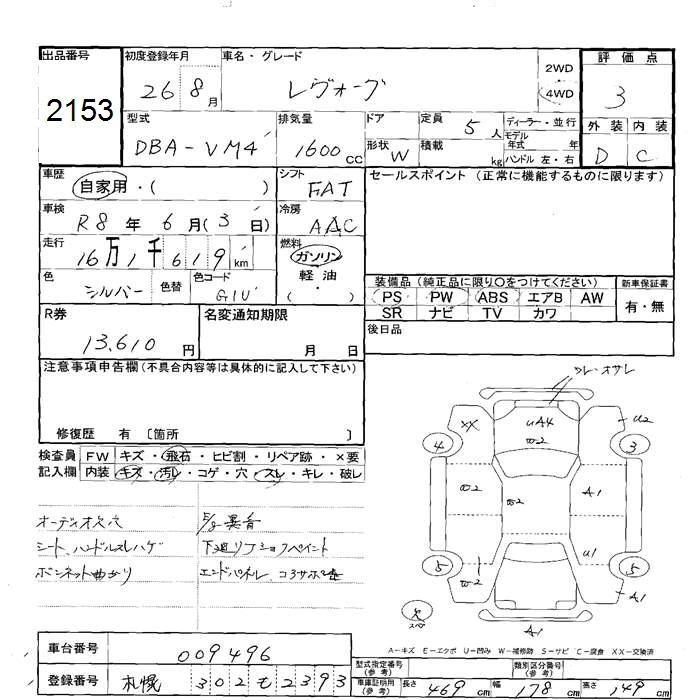 出品番号
2153
初度登録年月
26 8月
車名・グレード
レヴォーグ
2WD
4WD
評価点
3
外装 内装
D C
型式
DBA-VM4
排気量
1600cc
ドア
形状 W
定員 5人
積載 kg
ディーラー・並行
モデル年式 年
ハンドル 左・右
車歴
自家用・( )
シフト
FAT
セールスポイント (正常に機能するものに限ります)
車検
R8年6月(3日)
冷房
AAC
走行
16万1千619km
燃料
ガソリン
軽油
( )
色
シルバー
色替
色コード
G1U
装備品 (純正品に限り○をつけてください)
PS PW ABS エアB AW
SR ナビ TV カワ
新車保証書
有・無
R券
13,610円
名変通知期限
月 日
後日品
注意事項申告欄 (不具合内容等は具体的に記入して下さい)
修復歴 有 〔箇所 〕
検査員記入欄
FW キズ・飛石・ヒビ割・リペア跡・×要
内装 キズ・汚レ・コゲ・穴・スレ・キレ・破レ
オーディオ欠穴
シート、ハンドルスレハゲ
ボンネット曲がり
異音
下廻リ
エンドパネル、コアサポ
XX
uA4
W2
u2
4
3
W2
W2
A1
u1
W2
5
5
A1
欠
スペア
A-キズ E-エクボ U-凹み W-補修跡 S-サビ C-腐食 XX-交換済
車台番号
009496
登録番号
札幌 302 も 2393
型式指定番号(参考)
類別区分番号(参考)
車庫証明用(参考)
長さ 469cm
幅 178cm
高さ 149cm